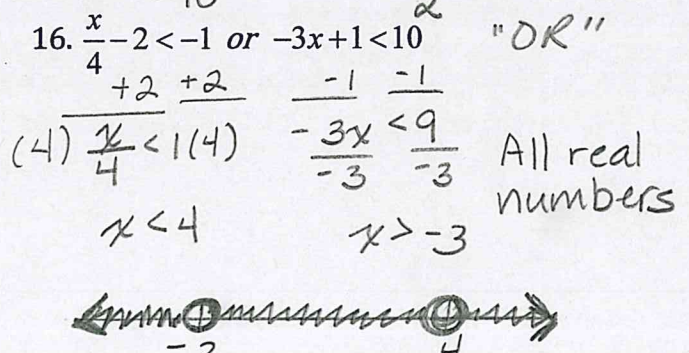 16. x/4 - 2 < -1 or -3x + 1 < 10 "OR"
+2 +2 -1 -1
(4) x/4 < 1(4) -3x/-3 < 9/-3 All real
numbers
x < 4 x > -3
4